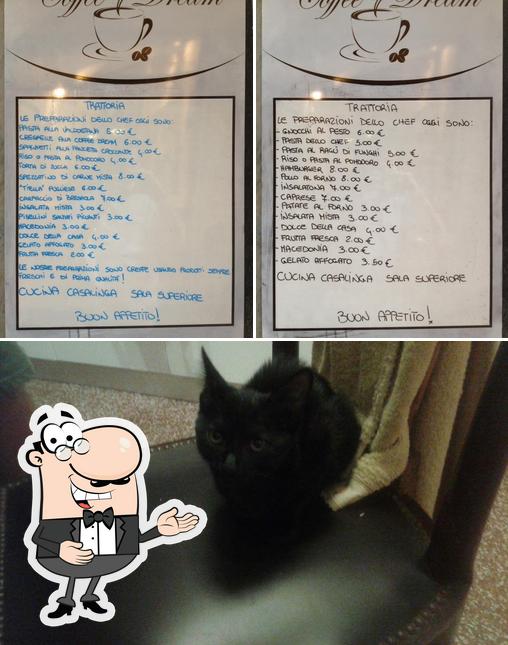 Coffee Dream
TRATTORIA
LE PREPARAZIONI DELLO CHEF OGGI SONO:
PASTA ALLA VALDOSTANA 6.00 €
CRESPELLE ALLA COFFEE DREAM 6.00 €
SPAGHETTI ALLA PANCETA CROCCANTE 4,00 €
RISO O PASTA AL POMODORO 4,00 €
TORTA DI ZUCCA 6.00 €
SPEZZATINO DI CARNE MISTA 8.00 €
"TIELLA" PUGLIESE 6.00 €
CARPACCIO DI BRESAOLA 7.00 €
INSALATA MISTA 3.00 €
PISELLINI SALTATI PICCANTI 3.00 €
MACEDONIA 3.00 €
DOLCE DELLA CASA 4,00 €
GELATO AFFOGATO 3.00 €
FRUTTA FRESCA 2.00 €
LE NOSTRE PREPARAZIONI SONO CREATE USANDO PRODOTTI SEMPRE
FRESCHI E DI PRIMA QUALITA'!
CUCINA CASALINGA SALA SUPERIORE
BUON APPETITO!
Coffee Dream
TRATTORIA
LE PREPARAZIONI DELLO CHEF OGGI SONO:
- GNOCCHI AL PESTO 6.00 €
- PASTA DELLO CHEF 5.00 €
- PASTA AL RAGÙ DI FUNGHI 5,00 €
- RISO O PASTA AL POMODORO 4,00 €
- HAMBURGER 8.00 €
- POLLO AL FORNO 8.00 €
- INSALATONA 7.00 €
- CAPRESE 7.00 €
- PATATE AL FORNO 3.00 €
- INSALATA MISTA 3.00 €
- DOLCE DELLA CASA 4,00 €
- FRUTTA FRESCA 2.00 €
- MACEDONIA 3.00 €
- GELATO AFFOGATO 3.50 €
CUCINA CASALINGA SALA SUPERIORE
BUON APPETITO!